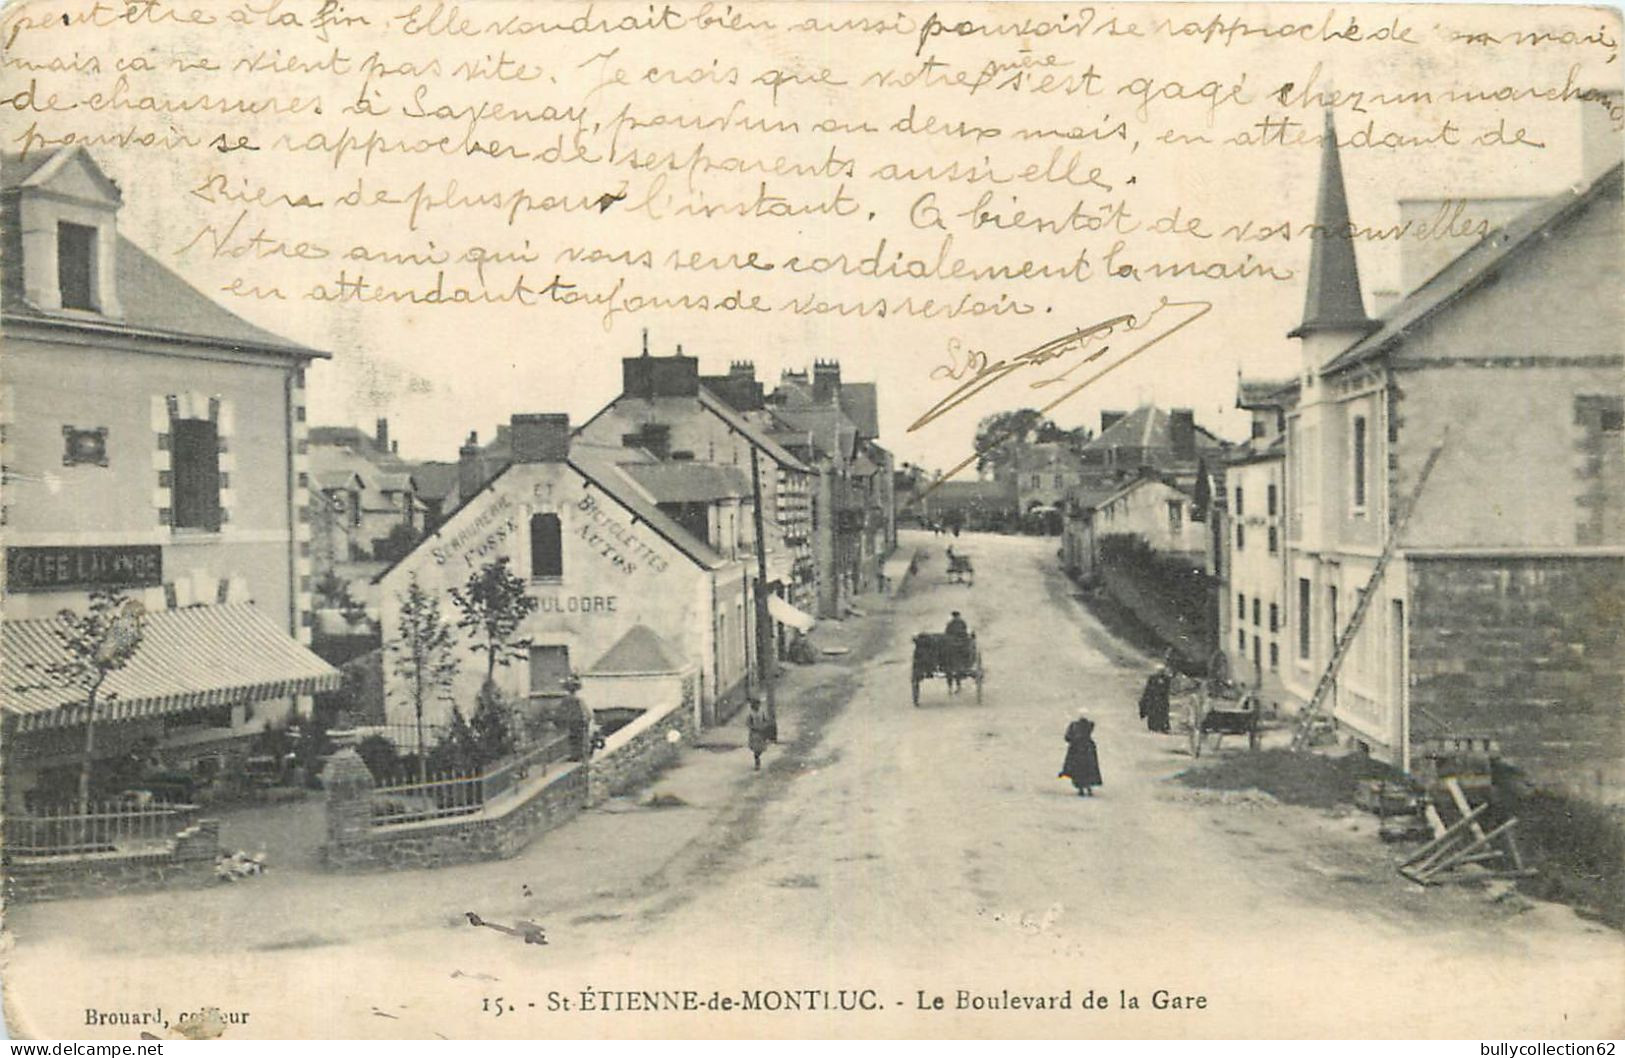 peut être à la fin. Elle voudrait bien aussi pouvoir se rapproché de son mari,
mais ça ne vient pas vite. Je crois que votre mère s'est gagé chez un marchand
de chaussures à Savenay, pour un ou deux mois, en attendant de
pouvoir se rapprocher de ses parents aussi elle.
Rien de plus pour l'instant. A bientôt de vos nouvelles.
Votre ami qui vous serre cordialement la main
en attendant toujours de vous revoir.
SERRURERIE ET BICYCLETTES
FOSSE AUTOS
CAFE LALANDE
15. - St-ÉTIENNE-de-MONTLUC. - Le Boulevard de la Gare
Brouard, coiffeur
bullycollection62